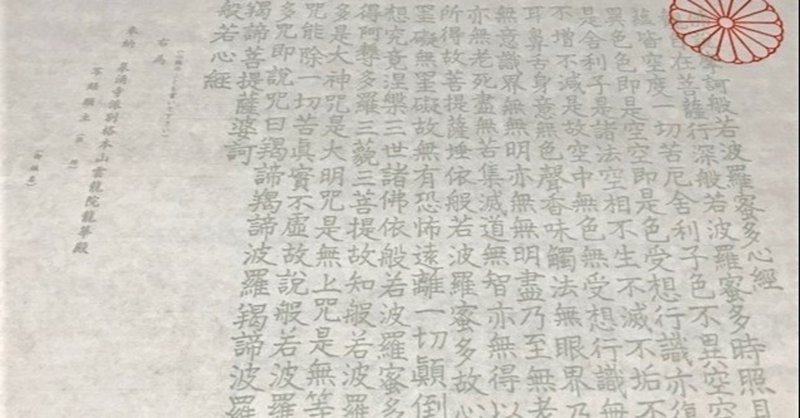 訶般若波羅蜜多心經
在菩薩行深般若波羅蜜多時照見
蘊皆空度一切苦厄舍利子色不異空空
異色色即是空空即是色受想行識亦復
是舍利子是諸法空相不生不滅不垢不
不增不減是故空中無色無受想行識無
耳鼻舌身意無色聲香味觸法無眼界乃
無意識界無無明亦無無明盡乃至無老
亦無老死盡無苦集滅道無智亦無得以
所得故菩提薩埵依般若波羅蜜多故心
罣礙無罣礙故無有恐怖遠離一切顛倒
想究竟涅槃三世諸佛依般若波羅蜜多
得阿耨多羅三藐三菩提故知般若波羅
多是大神咒是大明咒是無上咒是無等
咒能除一切苦真實不虛故說般若波羅
多咒即說咒曰羯諦羯諦波羅羯諦波羅
羯諦菩提薩婆訶
般若心經
右為
奉納 泉涌寺派別格本山雲龍院龍華殿
写経願主